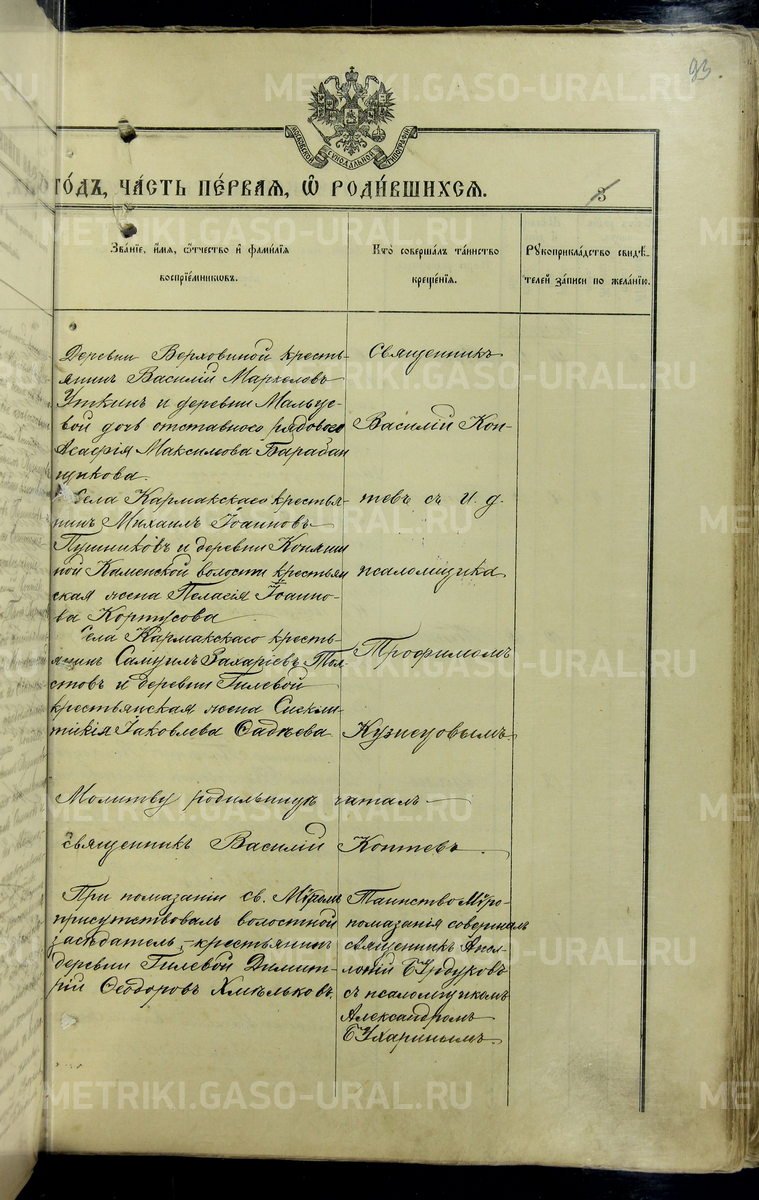 93.
МОСКОВСКОЙ СѴНОДАЛЬНОЙ ТИПОГРАФІИ
ГО́ДЪ, ЧА́СТЬ ПЕ́РВАЯ, Ѡ҆ РОДИ́ВШИХСѦ.
3
Зва́нїе, и҆́мѧ, ѻ҆́тчество и҆ фами́лїѧ
воспрїе́мникѡвъ.
Кто̀ соверша́лъ та́инство
креще́нїѧ.
Рꙋкоприкла́дство свидѣ́-
телей за́писи по жела́нїю.
Деревни Верховиной кресть-
янинъ Василій Маркеловъ
Уткинъ и деревни Мальце-
вой дочь отставного рядового
Максимова Барабан
щикова.
Священникъ
Василій Коп-
Села Кармакскаго крестья-
нинъ Михаилъ Іоанновъ
Пушниковъ и деревни
ной Каменской волости крестьян
ская жена Пелагія Іоанно-
ва Кортусова
тевъ съ и. д.
псаломщика
Села Кармакскаго кресть-
янинъ Самуилъ Захаріевъ Тол-
стовъ и деревни Гилевой
крестьянская жена
Іаковлева Садкева
Трофимомъ
Кузнецовымъ.
Молитву родильницѣ читалъ
священникъ Василій Коптевъ.
При помазаніи св. Мѵромъ
присутствовалъ волостной
засѣдатель, крестьянинъ
деревни Гилевой Димит-
рій Ѳеодоровъ Хмѣльковъ.
Таинство Мѵро-
помазанія совершалъ
священникъ Апол-
лоній Бурдуковъ
съ псаломщикомъ
Александромъ
Бухаринымъ.
METRIKI.GASO-URAL.RU